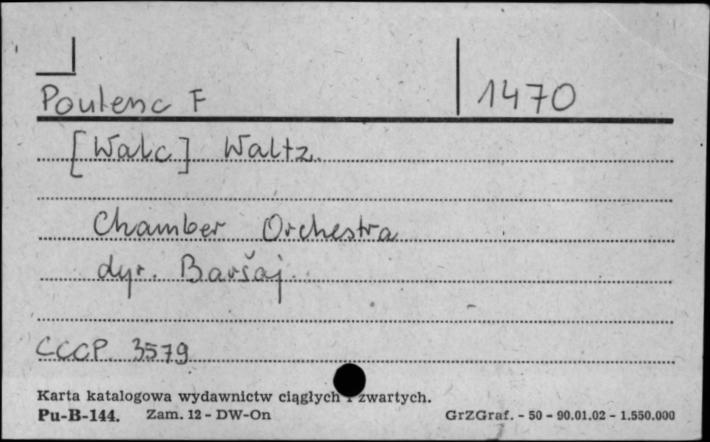 Poulenc F 1470
[Walc] Waltz
Chamber Orchestra
dyr. Baršaj
CCCP 3579
Karta katalogowa wydawnictw ciągłych i zwartych.
Pu-B-144. Zam. 12 - DW-On GrZGraf. - 50 - 90.01.02 - 1.550.000